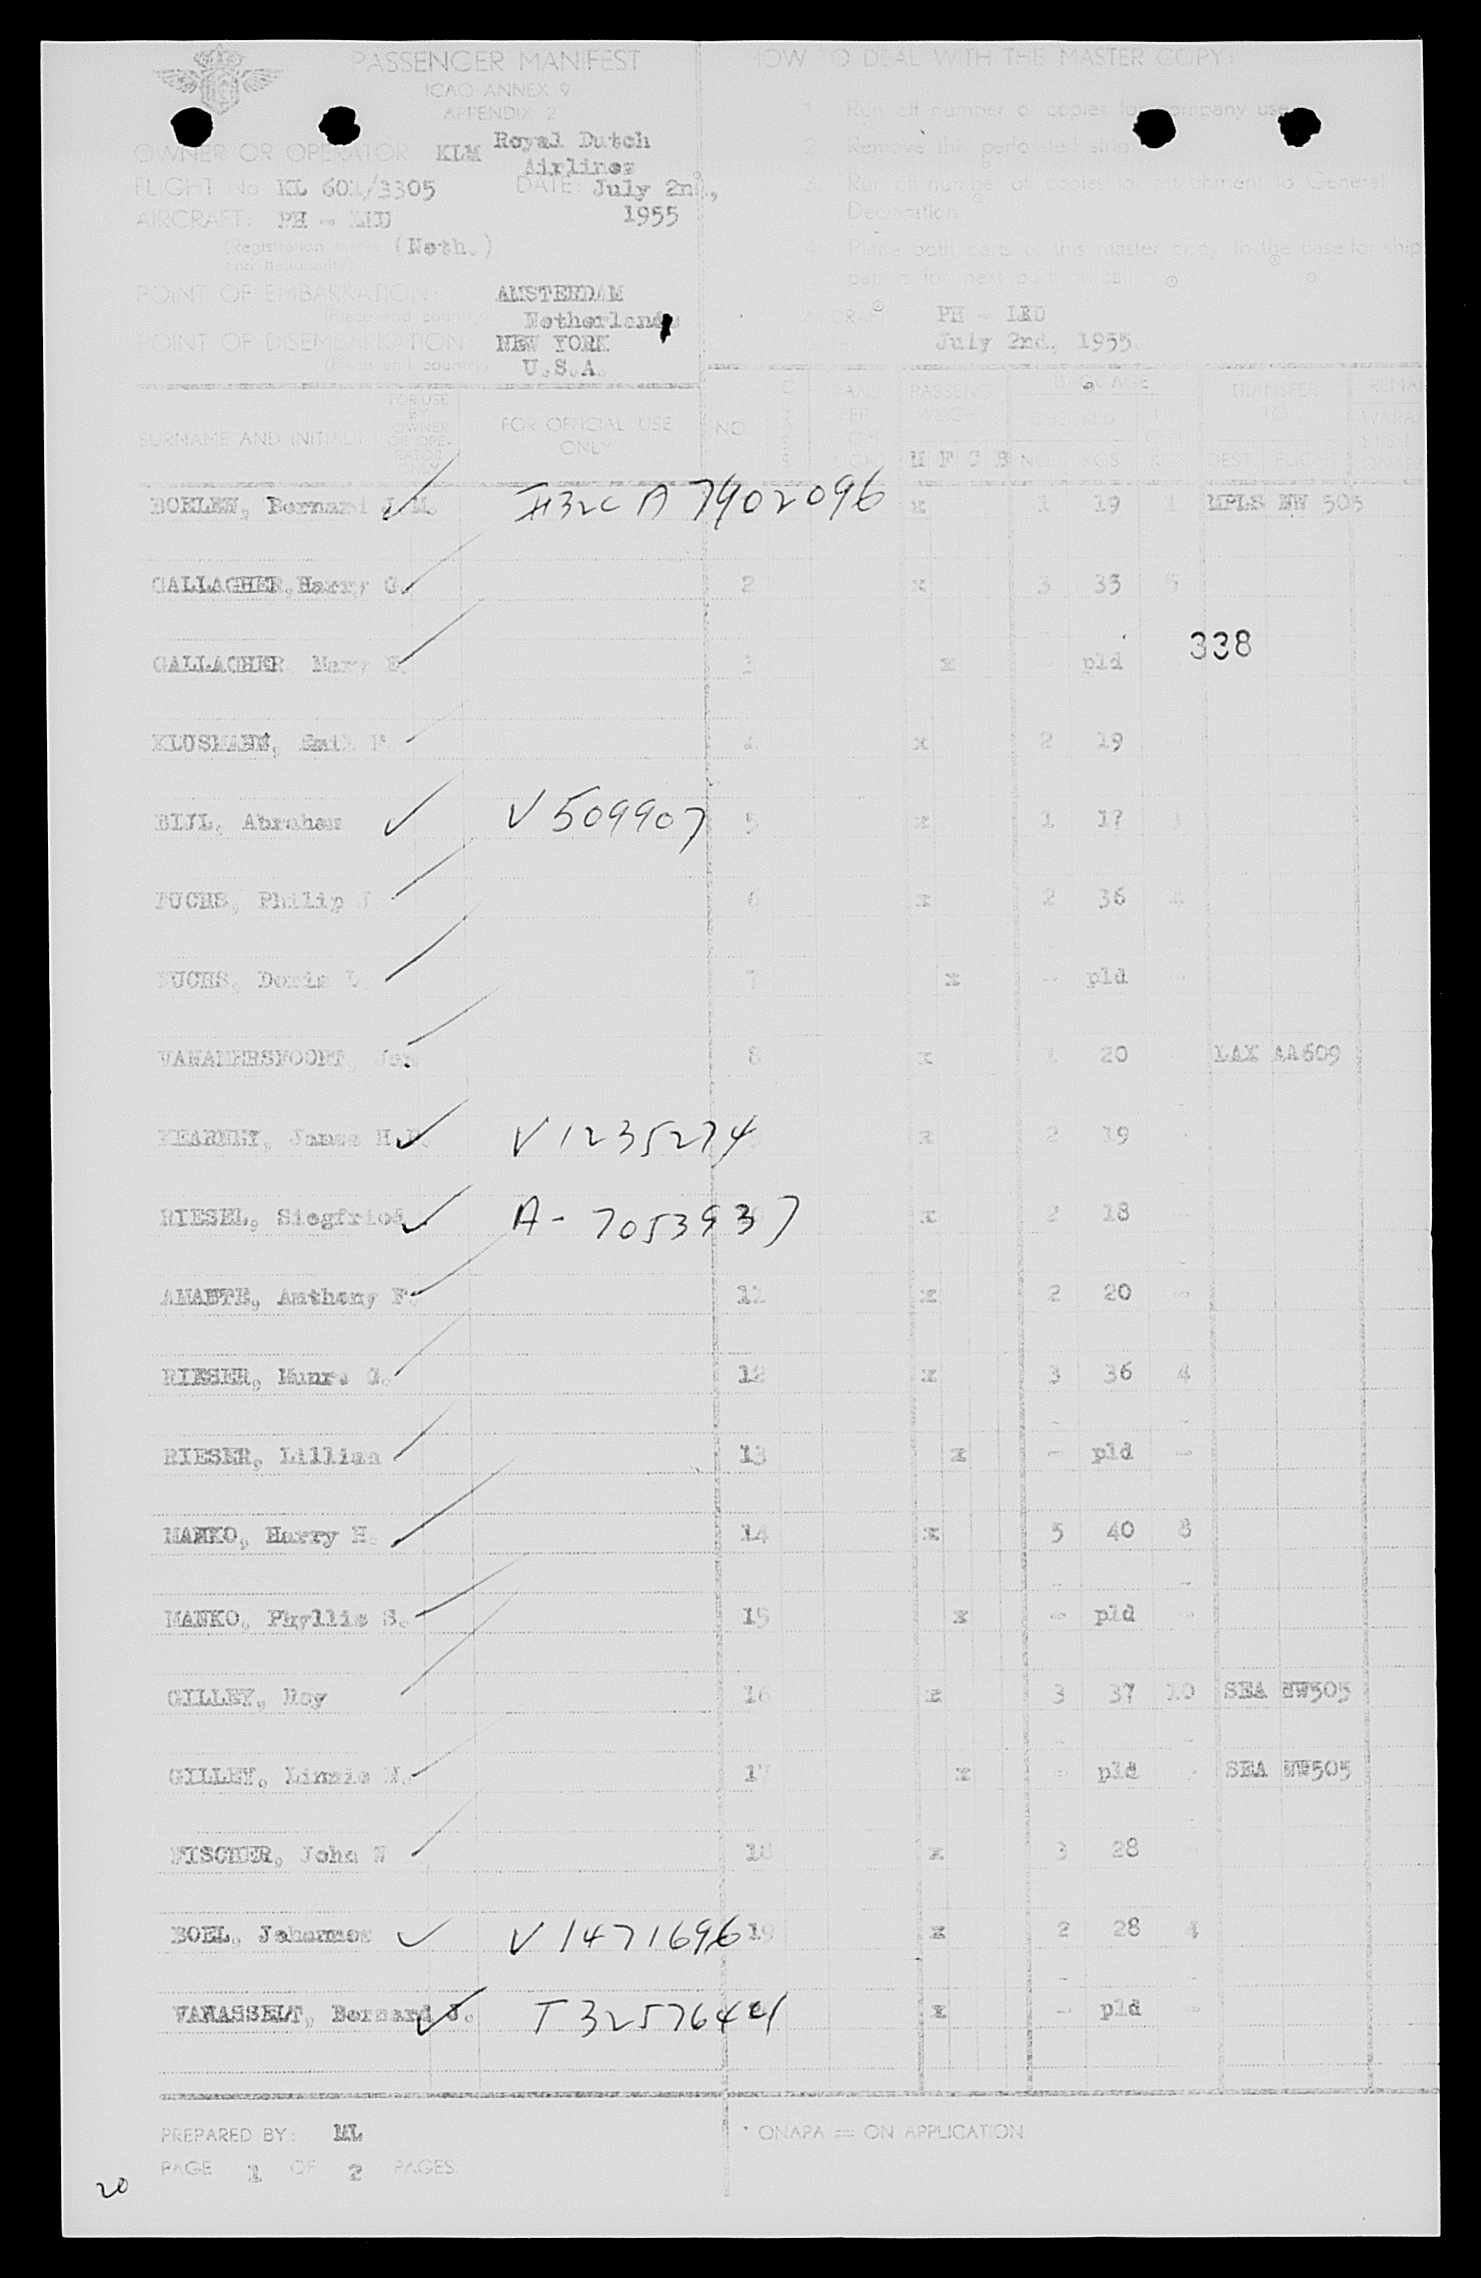 PASSENGER MANIFEST
ICAO ANNEX 9
APPENDIX 2
OWNER OR OPERATOR KLM Royal Dutch
Airlines
FLIGHT No KL 601/3305 DATE: July 2nd,
1955
AIRCRAFT: PH - LKU
(Registration (Neth.)
and Nationality)
POINT OF EMBARKATION: AMSTERDAM
(Place and country) Netherlands
POINT OF DISEMBARKATION NEW YORK
(Place and country) U.S.A.
HOW TO DEAL WITH THE MASTER COPY:
1. Run off number of copies for company use
2. Remove this perforated strip
3. Run off number of copies for attachment to General
Declaration
4. Place both parts of this master copy in the case for ship
papers for next port of call
PH - LKU
July 2nd, 1955.
SURNAME AND INITIALS FOR USE BY OWNER OR OPERATOR ONLY FOR OFFICIAL USE ONLY NO. PASSENG. M F C B BAGGAGE NO. KGS TRANSFER TO DEST. REMA
BOELEN, Bernard J.M. A 7902096 x 1 19 1 MPLS NW 505
GALLAGHER, Harry G. 2 x 3 35 5
GALLAGHER Mary E. 3 x - pld
338
KLUSMANN, Emil F. 4 x 2 19
BIJL, Abraham V509907 5 x 1 17
FUCHS, Philip J 6 x 2 36 4
FUCHS, Doris L 7 x - pld -
VANAMERSFOORT, Jan 8 x 1 20 LAX AA609
KEARNEY, James H.D. V1235274 x 2 19 -
RIESEL, Siegfried A-7053937 x 2 18
AMANTE, Anthony F. 11 x 2 20 -
RIESER, Munro G. 12 x 3 36 4
RIESER, Lillian 13 x - pld -
MANKO, Harry H. 14 x 5 40 8
MANKO, Phyllis S. 15 x - pld -
GILLEY, Roy 16 x 3 37 10 SEA NW505
GILLEY, Linzie M. 17 x - pld - SEA NW505
FISCHER, John N 18 x 3 28
BOEL, Johannes V 1471696 19 x 2 28 4
VANASSELT, Bernard J. T 3257644 x - pld -
PREPARED BY: ML
* ONAPA = ON APPLICATION
PAGE 1 OF 2 PAGES.
20